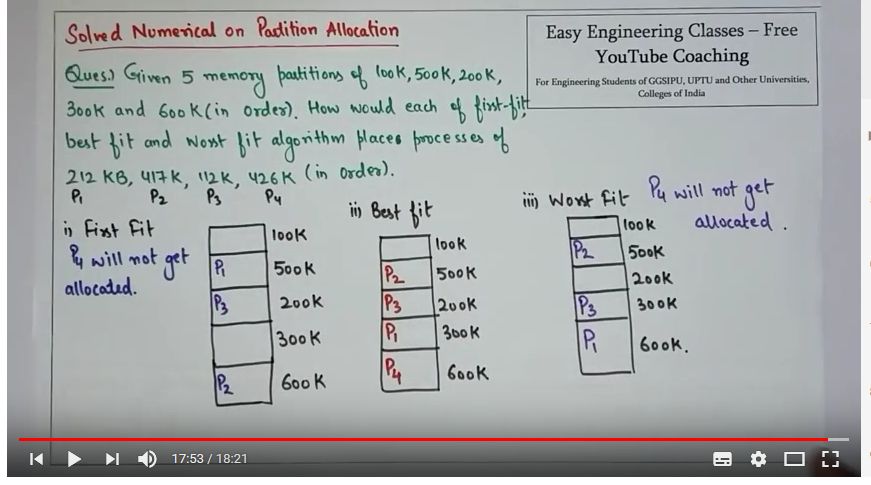 Solved Numerical on Partition Allocation
Easy Engineering Classes – Free
YouTube Coaching
For Engineering Students of GGSIPU, UPTU and Other Universities,
Colleges of India
Ques.) Given 5 memory partitions of 100K, 500K, 200K,
300K and 600K (in order). How would each of first-fit,
best fit and worst fit algorithm places processes of
212 KB, 417K, 112K, 426K (in order).
P1 P2 P3 P4
i) First Fit
P4 will not get
allocated.
100K
P1 500K
P3 200K
300K
P2 600K
ii) Best fit
100K
P2 500K
P3 200K
P1 300K
P4 600K
iii) Worst Fit P4 will not get
allocated.
100K
P2 500K
200K
P3 300K
P1 600K.
17:53 / 18:21